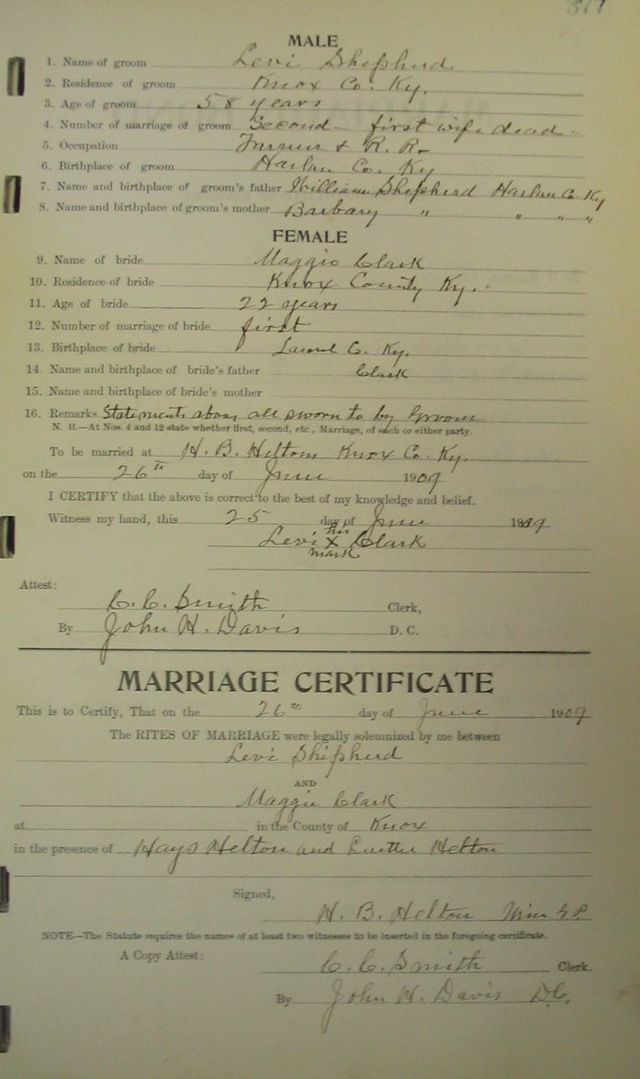 317
MALE
1. Name of groom Levi Shepherd
2. Residence of groom Knox Co. Ky.
3. Age of groom 58 years
4. Number of marriage of groom Second - first wife dead -
5. Occupation & R. R.
6. Birthplace of groom Harlan Co. Ky
7. Name and birthplace of groom's father William Shepherd Harlan Co. Ky
8. Name and birthplace of groom's mother Barbary " " " "
FEMALE
9. Name of bride Maggie Clark
10. Residence of bride Knox County Ky.
11. Age of bride 22 years
12. Number of marriage of bride first
13. Birthplace of bride Laurel C. Ky.
14. Name and birthplace of bride's father Clark
15. Name and birthplace of bride's mother
16. Remarks Statements above all sworn to by Groom
N. B.—At Nos. 4 and 12 state whether first, second, etc., Marriage, of each or either party.
To be married at H. B. Heltons Knox Co. Ky.
on the 26th day of June 1909
I CERTIFY that the above is correct to the best of my knowledge and belief.
Witness my hand, this 25 day of June 1909
his
Levi X Clark
mark
Attest:
C. C. Smith Clerk,
By John H. Davis D. C.
MARRIAGE CERTIFICATE
This is to Certify, That on the 26th day of June 1909
The RITES OF MARRIAGE were legally solemnized by me between
Levi Shipherd
AND
Maggie Clark
at in the County of Knox
in the presence of Hays Helton and Luther Helton
Signed,
H. B. Helton
NOTE—The Statute requires the names of at least two witnesses to be inserted in the foregoing certificate.
A Copy Attest: C. C. Smith Clerk.
By John H. Davis D.C.